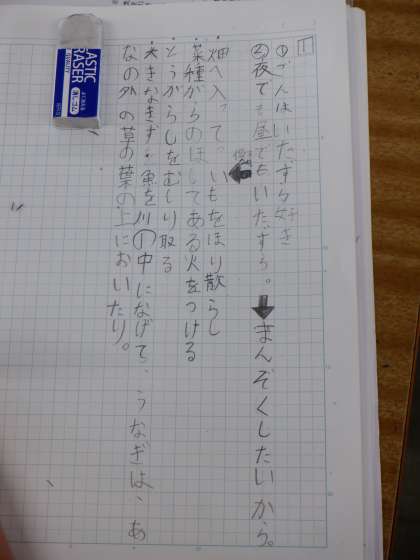 1
①ごんはいたずら好き
②夜でも昼でもいたずら。➡まんぞくしたいから。
・畑へ入って、いもをほり散らし
・菜種がらのほしてある火をつける
・とうがらしをむしり取る
・大きなきず・魚を川①中になげて、うなぎは、あ
なの外の草の葉の上においたり。
PLASTIC
ERASER